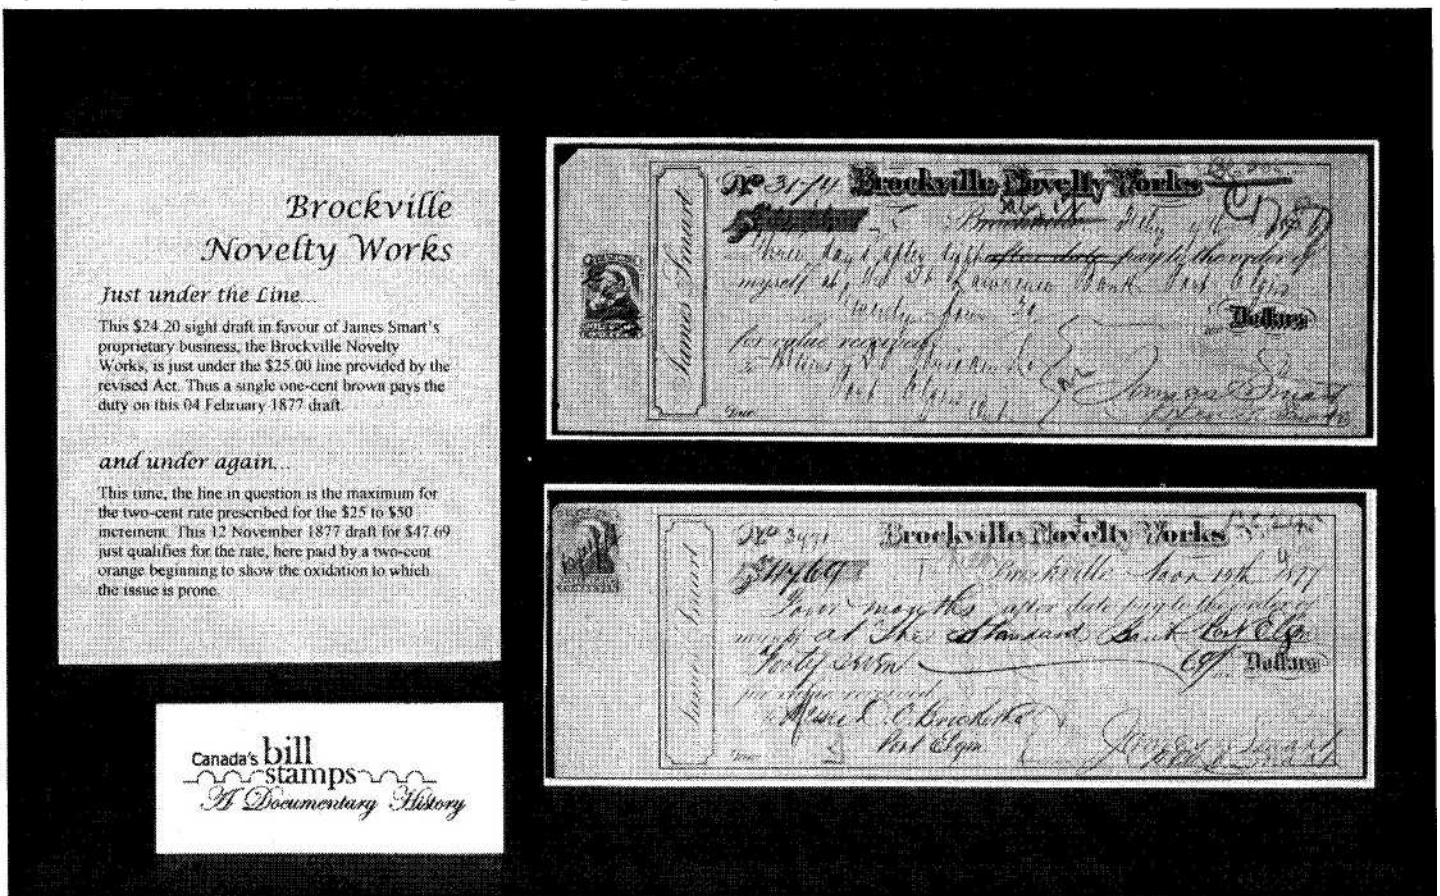 Brockville
Novelty Works
Just under the Line...
This $24.20 sight draft in favour of James Smart's
proprietary business, the Brockville Novelty
Works, is just under the $25.00 line provided by the
revised Act. Thus a single one-cent brown pays the
duty on this 04 February 1877 draft.
and under again...
This time, the line in question is the maximum for
the two-cent rate prescribed for the $25 to $50
increment. This 12 November 1877 draft for $47.69
just qualifies for the rate, here paid by a two-cent
orange beginning to show the oxidation to which
the issue is prone.
Canada's bill
stamps
A Documentary History
James Smart
No 3174 Brockville Novelty Works
Three days after sight after date pay to the order of
myself at
Dollars
for value received
James Smart
James Smart
No 3971 Brockville Novelty Works
$47.69 Brockville Nov 1877
Four months after date pay to the order of
myself at The Standard Bank Port Elgin
Forty seven 69 Dollars
for value received
Port Elgin
James Smart